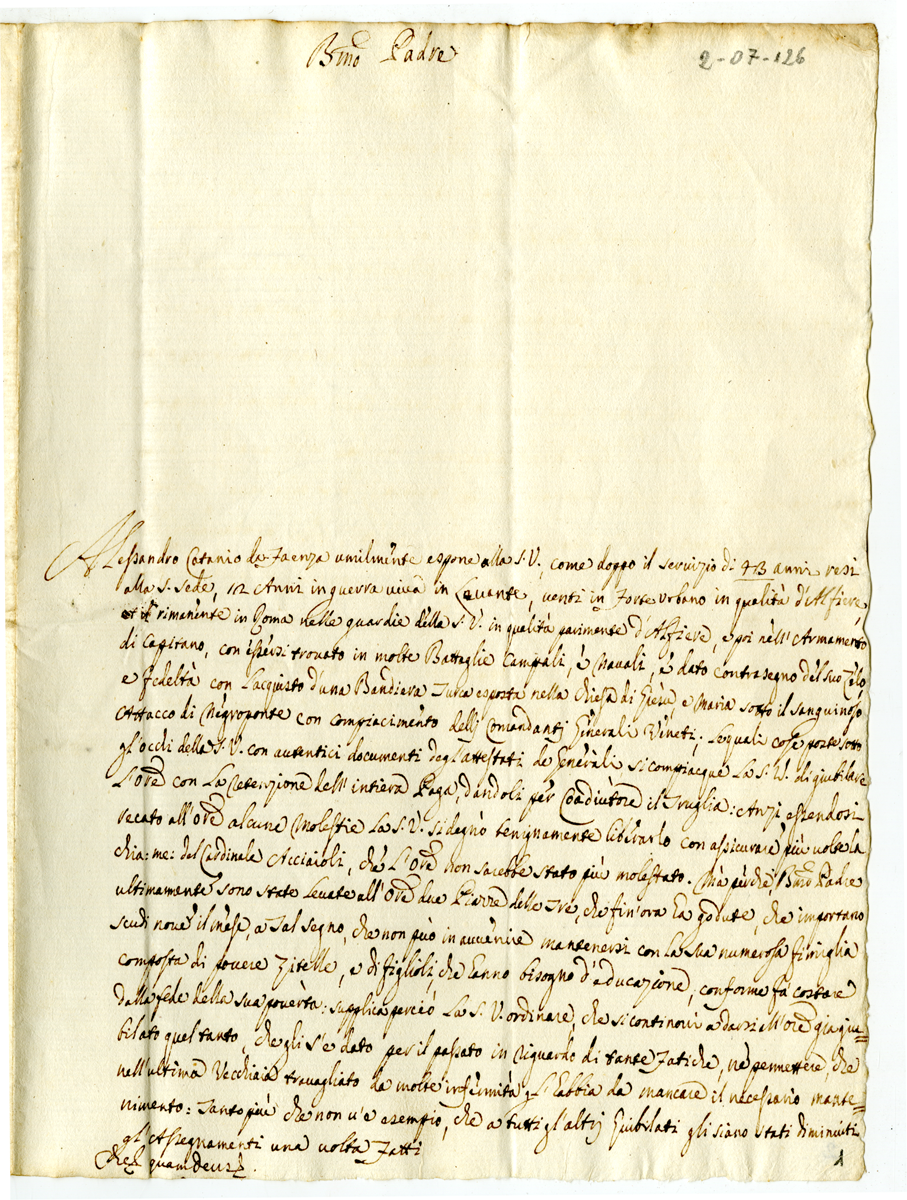 Bmo Padre
2-07-126
Alessandro Catanio da Faenza umilmente espone alla S.V., come doppo il servizio di 43 anni resi
alla S. Sede, 12 Anni in guerra viva in Levante, venti in Forte Urbano in qualità d'Alfiere,
et il rimanente in Roma nelle guardie della S.V. in qualità parimente d'Alfiere, e poi nell'Armamento
di Capitano, con essersi trovato in molte Battaglie Campali, e Navali, e dato contrasegno del suo Zelo,
e fedeltà con l'acquisto d'una Bandiera Turca esposta nella Chiesa di Giesù, e Maria sotto il sanguinoso
Attacco di Negroponte con compiacimento delli Comandanti Generali Veneti; le quali cose poste sotto
gl'occhi della S.V. con autentici documenti degl'attestati de Generali si compiacque la S.V. di giubilare
l'Ore con la retenzione dell'intiera Paga, dandoli per Coadiutore il Truglia: Anzi essendosi
recato all'Ore alcune Molestie la S.V. si degnò benignamente liberarlo con assicurare più volte la
chia: me: del Cardinale Acciaioli, che l'Ore non sarebbe stato più molestato. Mà perche, Bmo Padre
ultimamente sono state levate all'Ore due Piazze delle tre, che fin'ora hà godute, che importano
scudi nove il mese, a tal segno, che non può in avvenire mantenersi con la sua numerosa famiglia
composta di povere Zitelle, e di figlioli, che hanno bisogno d'educazione, conforme fà costare
dalla fede della sua povertà: supplica perciò la S.V. ordinare, che si continovi a darsi all'Ore già giu=
bilato quel tanto, che gli s'è dato per il passato in riguardo di tante fatiche, nè permettere, che
nell'ultima Vecchiaia travagliato da molte infermità gl'habbia da mancare il necessario mante=
nimento: Tanto più che non v'è esempio, che a tutti gl'altri Giubilati gli siano stati diminuiti
gl'Assegnamenti una volta fatti
Che quam Deus.
1